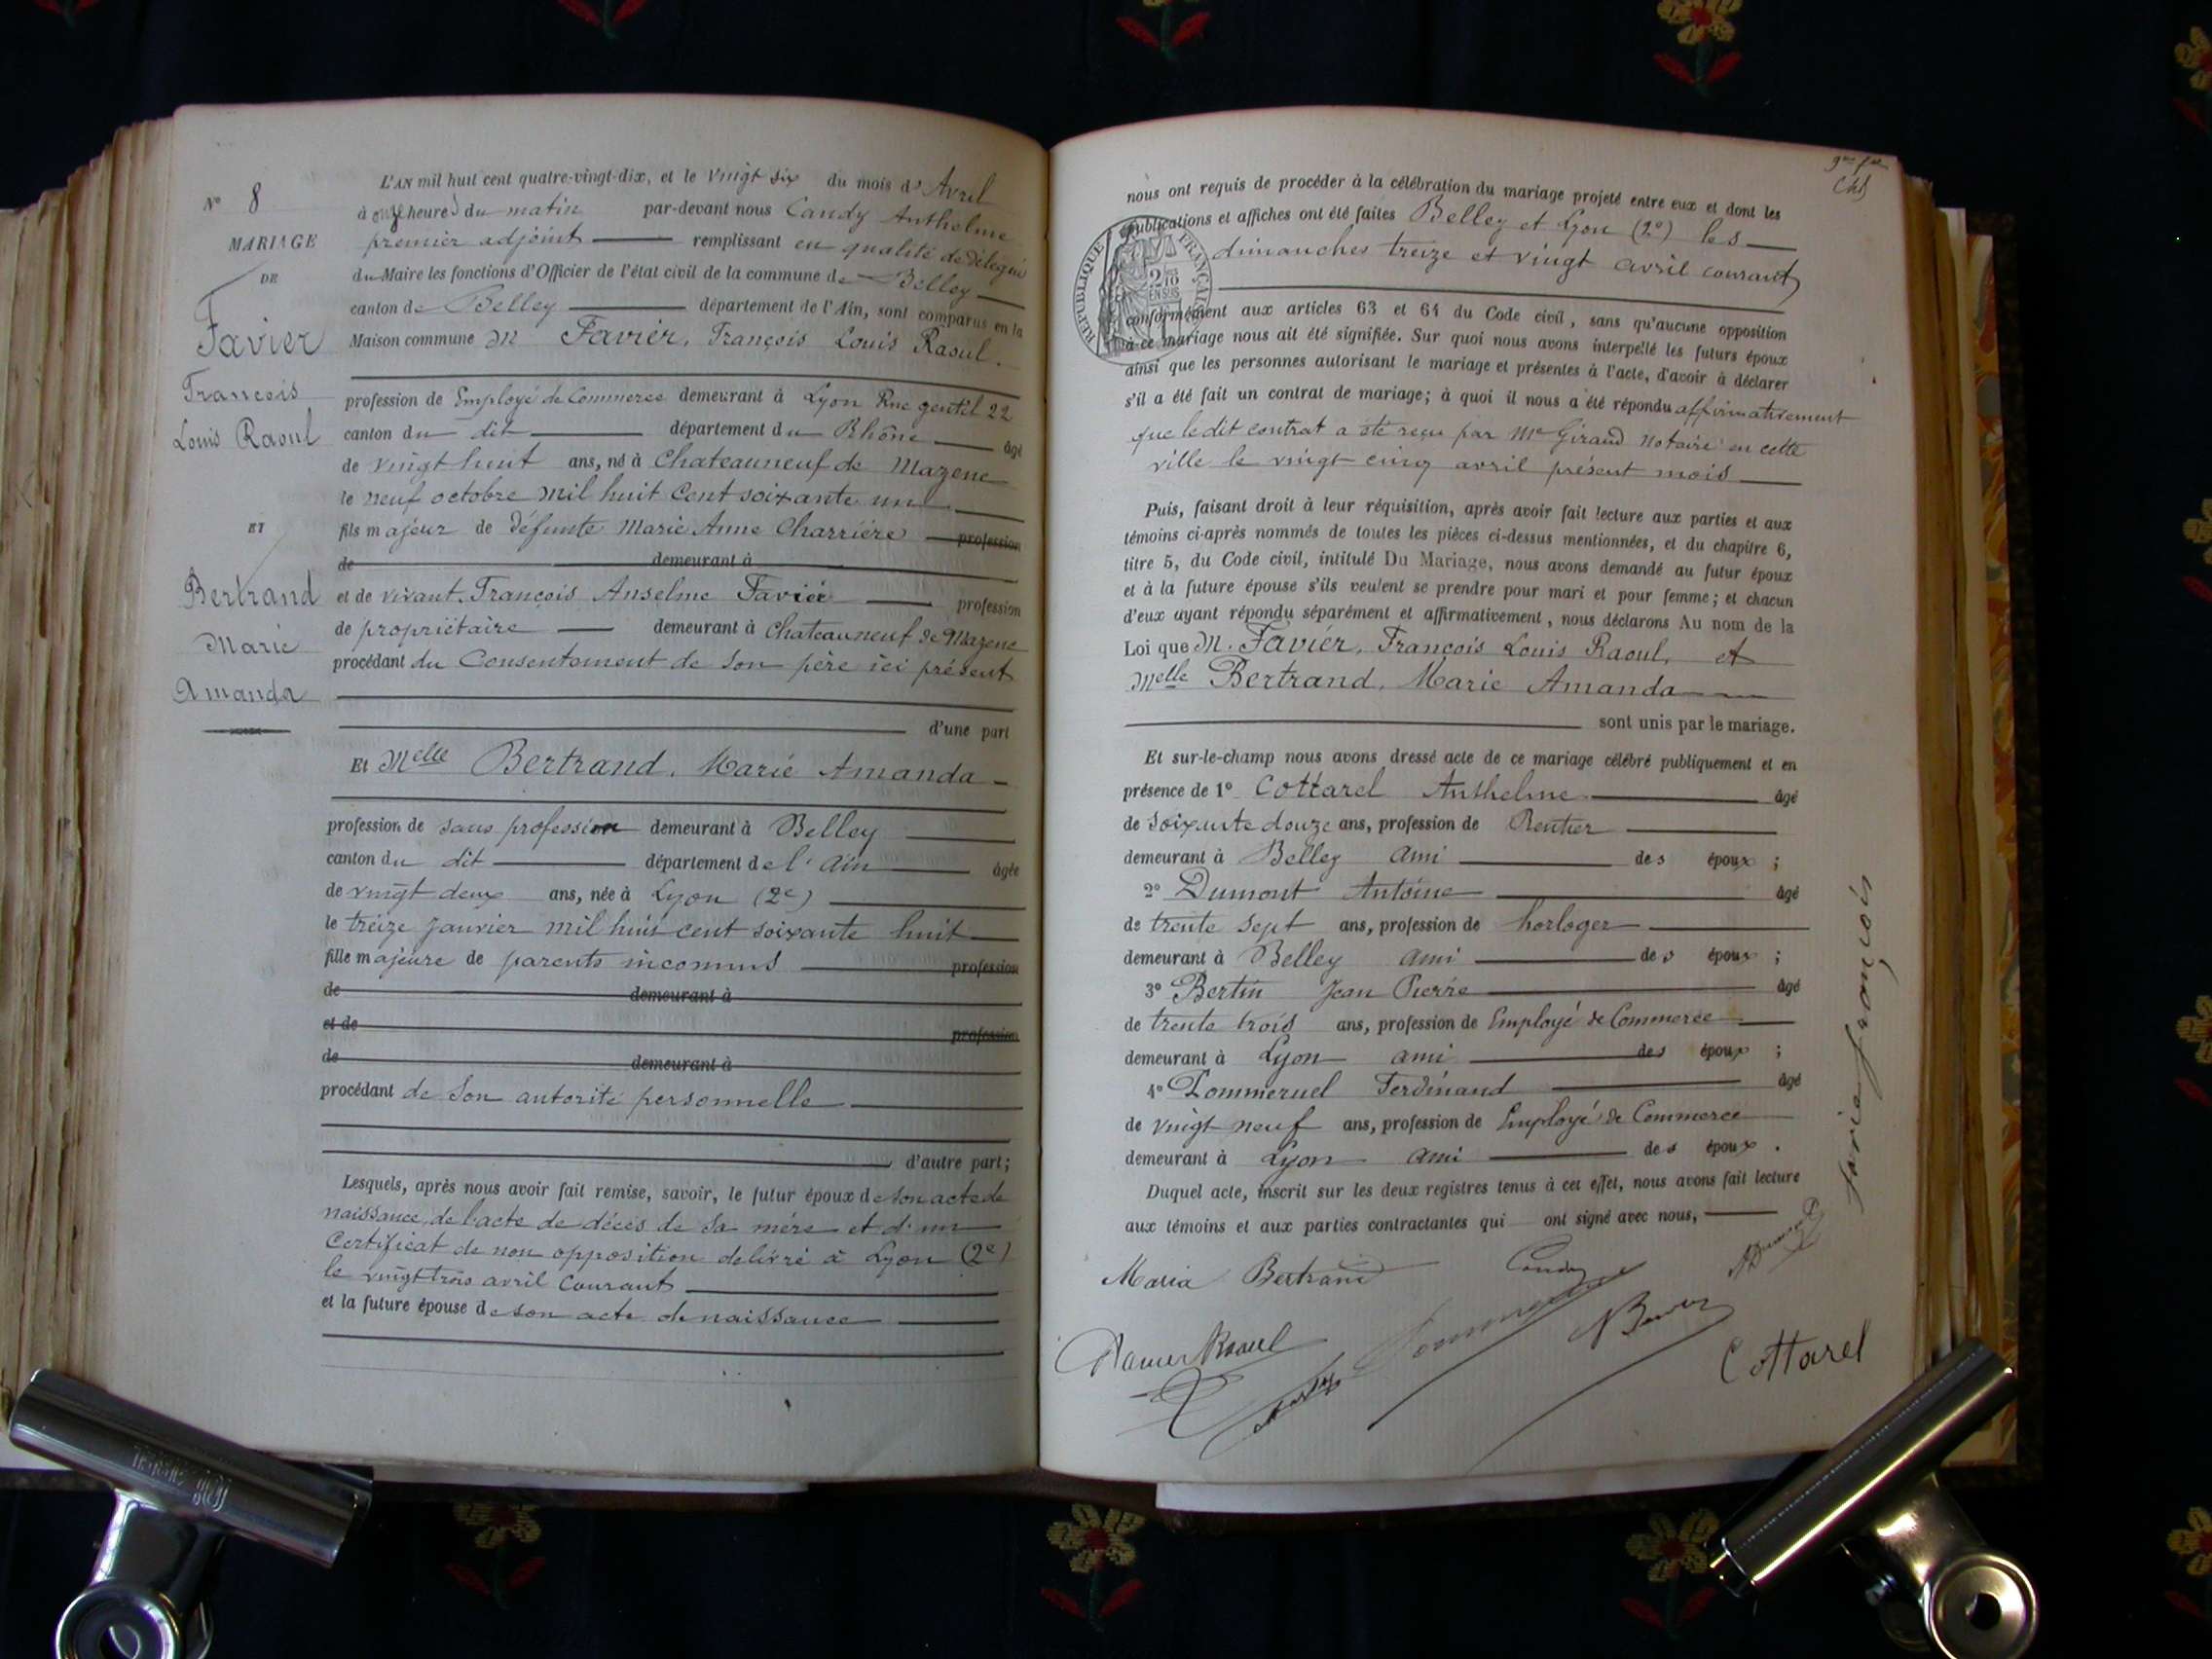 N° 8
MARIAGE
DE
Favier
François
Louis Raoul
ET
Bertrand
Marie
Amanda
L'AN mil huit cent quatre-vingt-dix, et le vingt six du mois d'Avril
à onze heures du matin par-devant nous Candy Anthelme
premier adjoint remplissant en qualité de délégué
du Maire les fonctions d'Officier de l'état civil de la commune de Belley
canton de Belley département de l'Ain, sont comparus en la
Maison commune M Favier, François Louis Raoul.
profession de Employé de Commerce demeurant à Lyon Rue gentil 22
canton du dit département du Rhône âgé
de vingt huit ans, né à Chateauneuf de Mazenc
le neuf octobre mil huit Cent soixante un
fils majeur de défunte Marie Anne Charrière profession
de demeurant à
et de vivant François Anselme Favier profession
de propriétaire demeurant à Chateauneuf de Mazenc
procédant du Consentement de son père ici présent
d'une part
Et Melle Bertrand, Marie Amanda
profession de sans profession demeurant à Belley
canton du dit département de l'Ain âgée
de vingt deux ans, née à Lyon (2e)
le treize Janvier mil huit cent soixante huit
fille majeure de parents inconnus profession
de demeurant à
et de profession
de demeurant à
procédant de Son autorité personnelle
d'autre part;
Lesquels, après nous avoir fait remise, savoir, le futur époux de son acte de
naissance, de l'acte de décès de sa mère et d'un
Certificat de non opposition délivré à Lyon (2e)
le vingt trois avril Courant
et la future épouse de son acte de naissance
nous ont requis de procéder à la célébration du mariage projeté entre eux et dont les
publications et affiches ont été faites Belley et Lyon (2e) les
dimanches treize et vingt avril courant
RÉPUBLIQUE FRANÇAISE
2/10 EN SUS
conformément aux articles 63 et 64 du Code civil, sans qu'aucune opposition
à ce mariage nous ait été signifiée. Sur quoi nous avons interpellé les futurs époux
ainsi que les personnes autorisant le mariage et présentes à l'acte, d'avoir à déclarer
s'il a été fait un contrat de mariage; à quoi il nous a été répondu affirmativement
que le dit contrat a été reçu par Me Giraud Notaire en cette
ville le vingt cinq avril présent mois
Puis, faisant droit à leur réquisition, après avoir fait lecture aux parties et aux
témoins ci-après nommés de toutes les pièces ci-dessus mentionnées, et du chapitre 6,
titre 5, du Code civil, intitulé Du Mariage, nous avons demandé au futur époux
et à la future épouse s'ils veulent se prendre pour mari et pour femme; et chacun
d'eux ayant répondu séparément et affirmativement, nous déclarons Au nom de la
Loi que M. Favier, François Louis Raoul, et
Melle Bertrand, Marie Amanda
sont unis par le mariage.
Et sur-le-champ nous avons dressé acte de ce mariage célébré publiquement et en
présence de 1° Cottarel Anthelme âgé
de soixante douze ans, profession de Rentier
demeurant à Belley ami des époux ;
2° Dumont Antoine âgé
de trente sept ans, profession de horloger
demeurant à Belley ami des époux ;
3° Bertin Jean Pierre âgé
de trente trois ans, profession de Employé de Commerce
demeurant à Lyon ami des époux ;
4° Pommeruel Ferdinand âgé
de vingt neuf ans, profession de Employé de Commerce
demeurant à Lyon ami des époux .
Duquel acte, inscrit sur les deux registres tenus à cet effet, nous avons fait lecture
aux témoins et aux parties contractantes qui ont signé avec nous,
Maria Bertrand Candy
Favier Raoul
Cottarel
favier françois